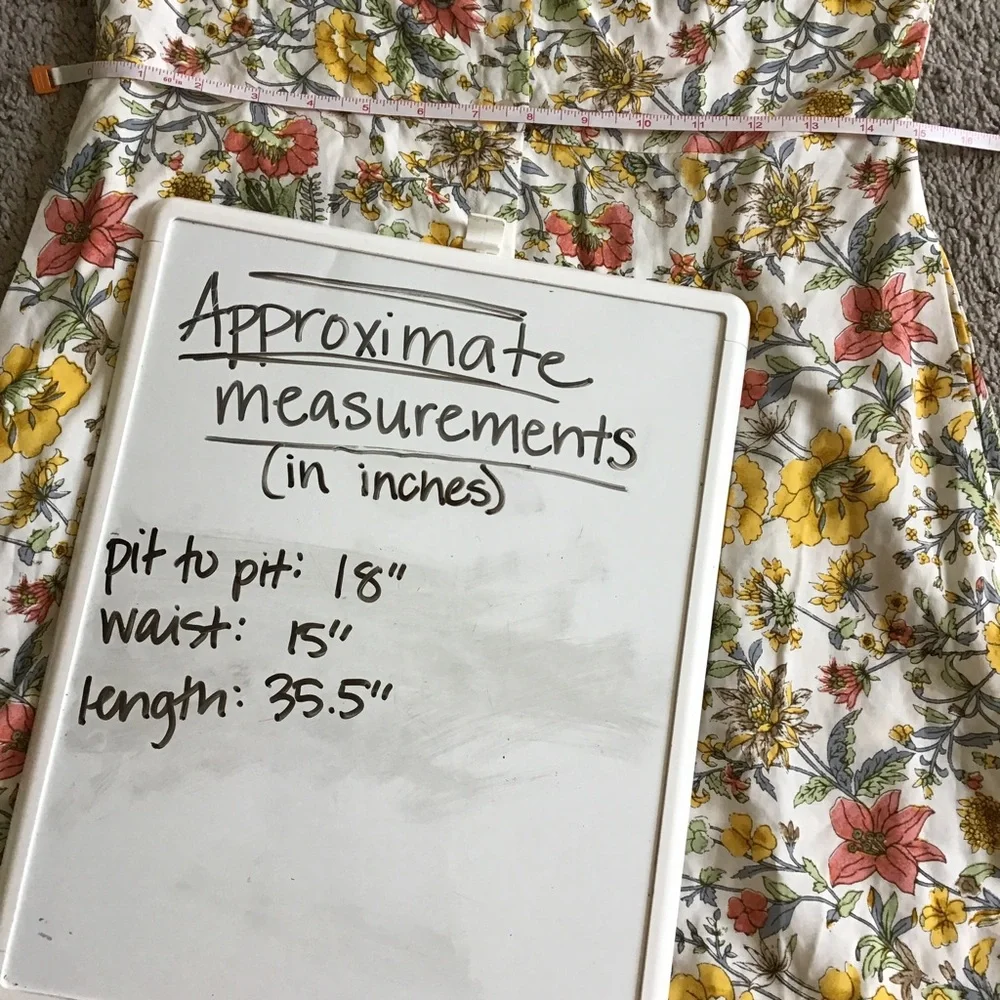 1 2 3 4 5 6 7 8 9 10 11 12 13 14 15
Approximate
measurements
(in inches)
pit to pit: 18"
waist: 15"
length: 35.5"